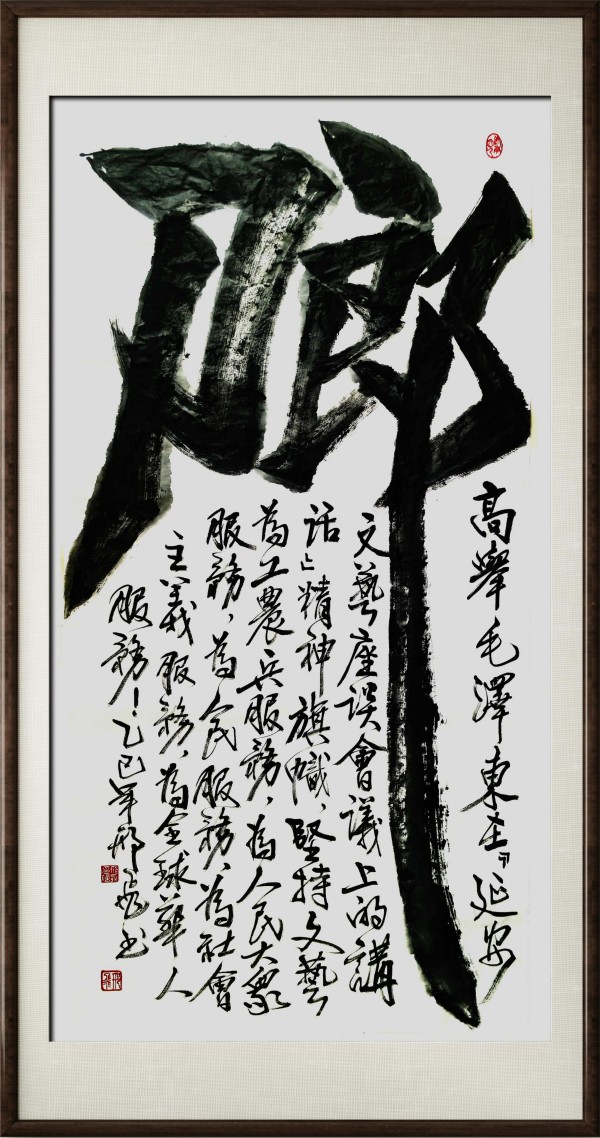 高舉毛澤東在『延安
文藝座误會議上的講
话』精神旗幟、堅持文藝
為工農兵服務、為人民大眾
服務、為人民服務、為社會
主義服務、為全球華人
服務！乙巳年邢飛书